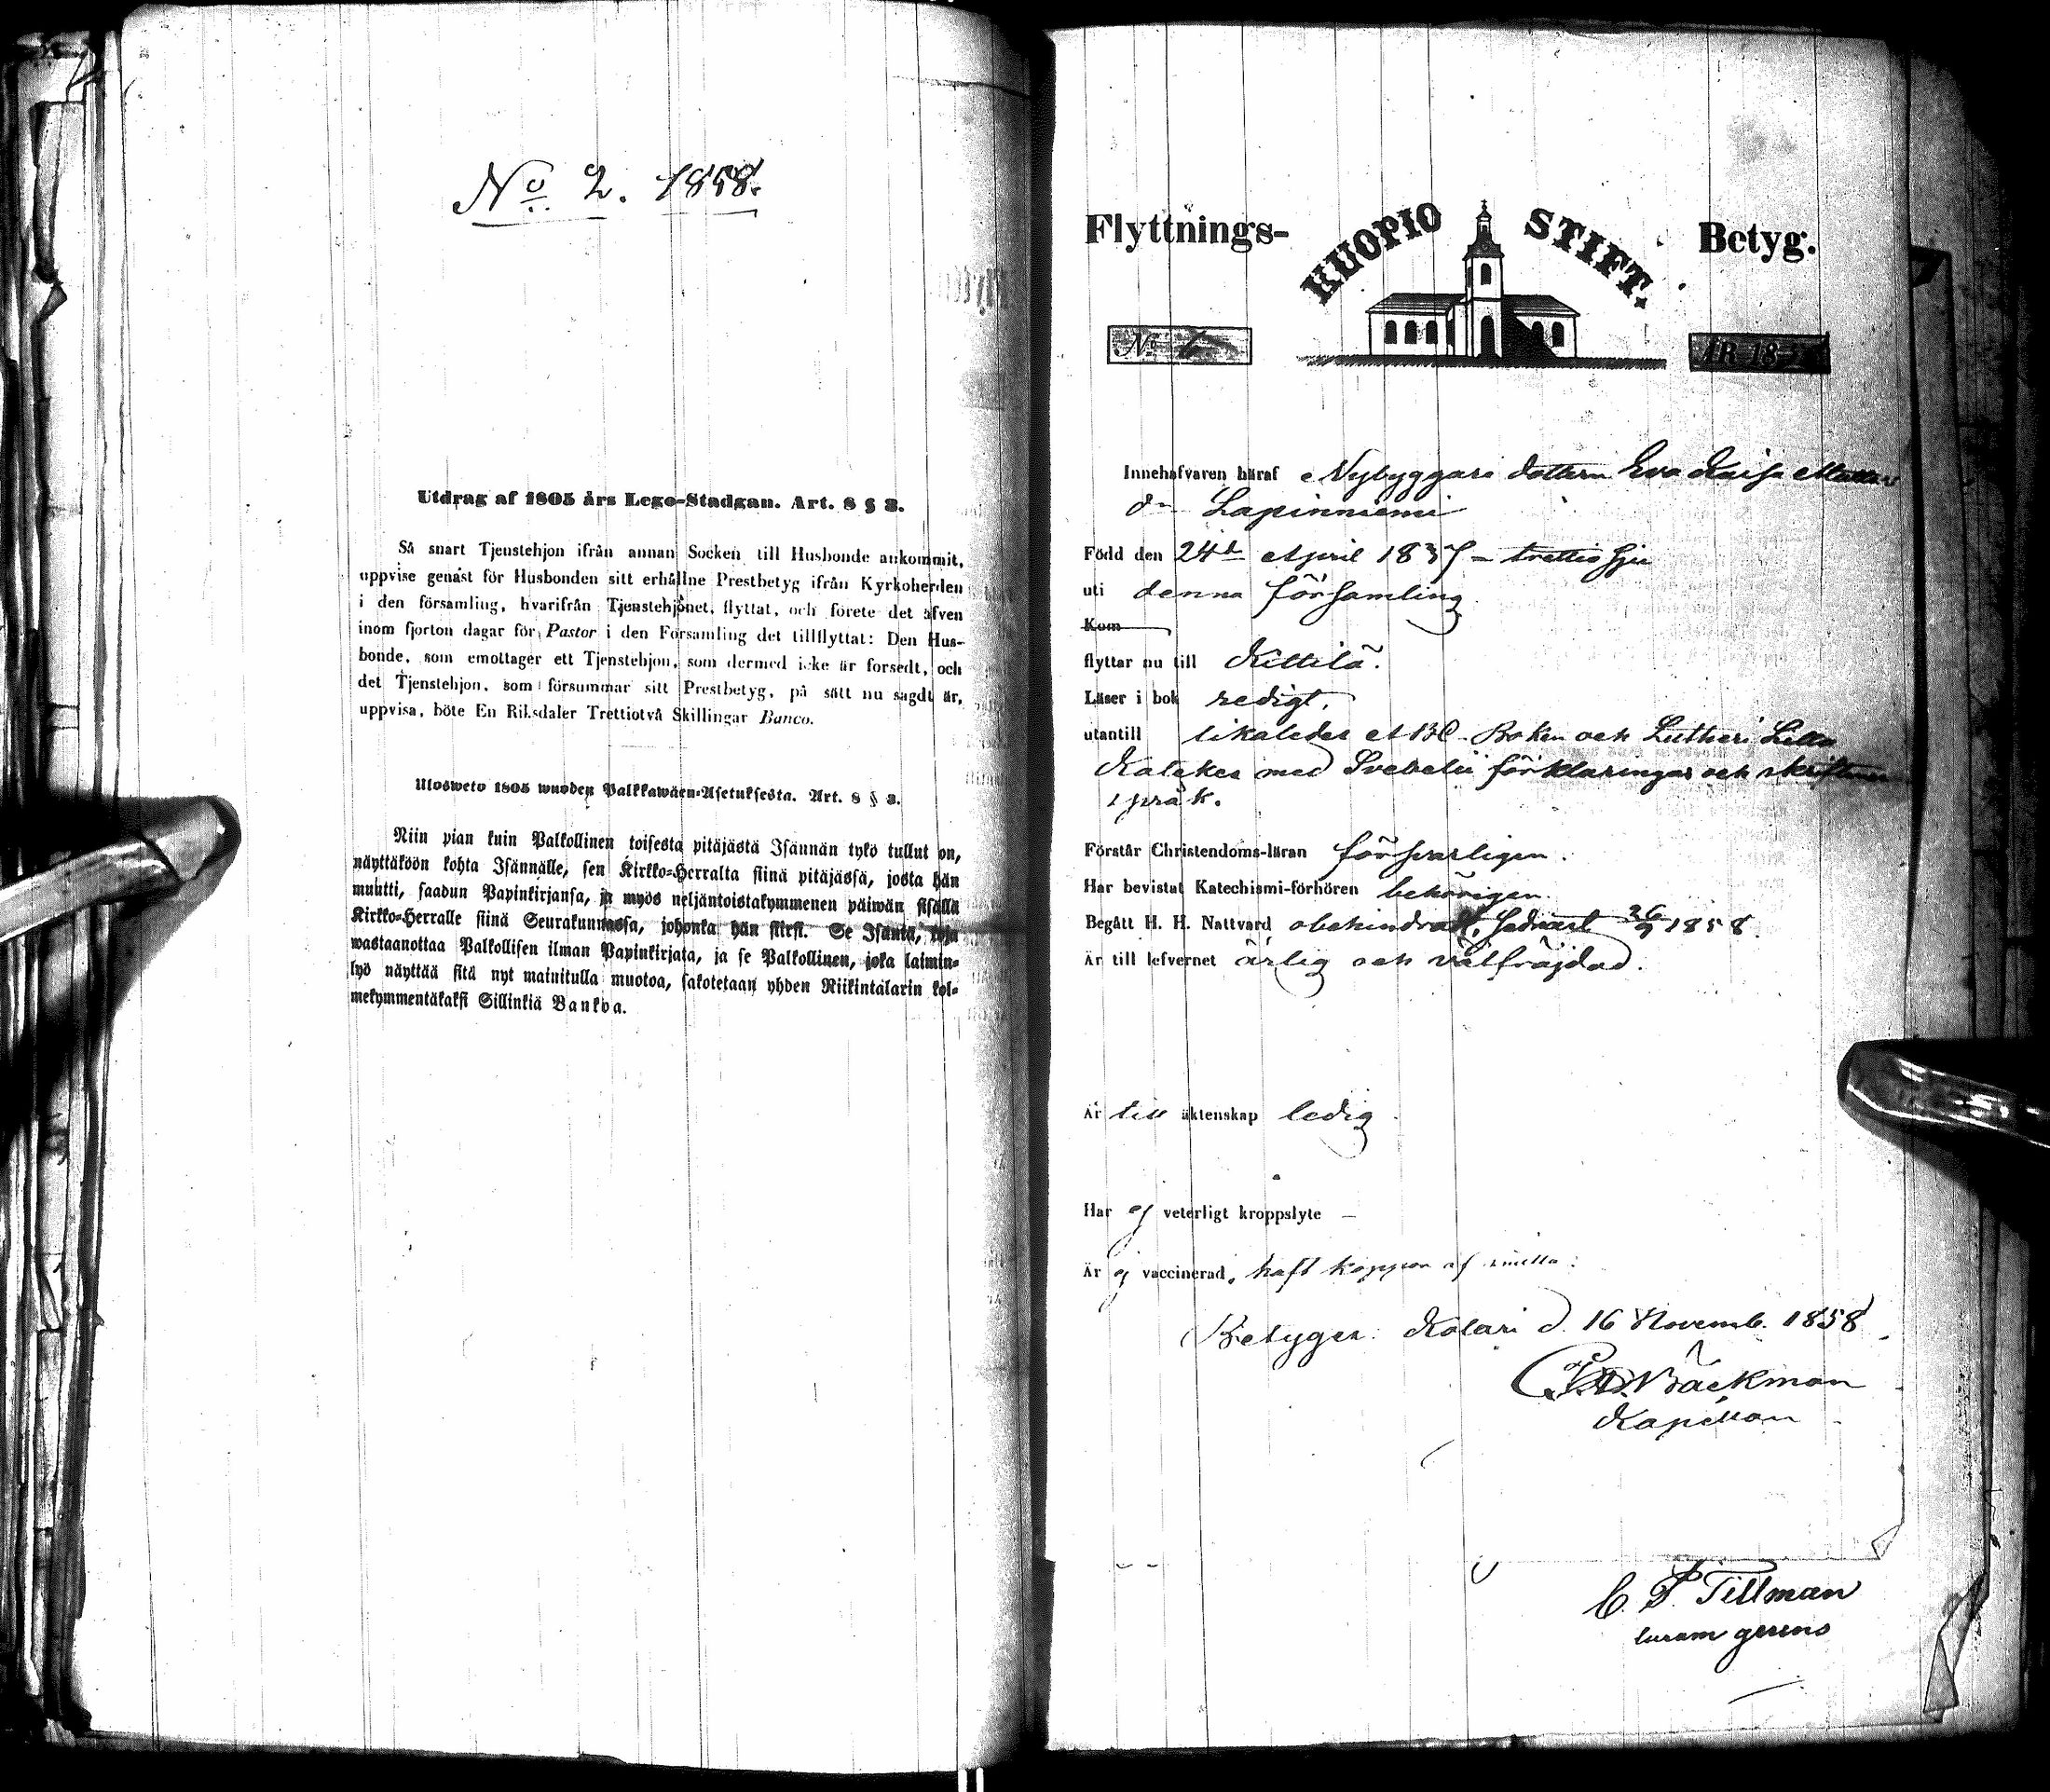 No. 2. 1858.
Utdrag af 1805 års Lego-Stadgan. Art. 8 § 3.
Så snart Tjenstehjon ifrån annan Socken till Husbonde ankommit,
uppvise genast för Husbonden sitt erhållne Prestbetyg ifrån Kyrkoherden
i den församling, hvarifrån Tjenstehjonet, flyttat, och förete det äfven
inom fjorton dagar för Pastor i den Församling det tillflyttat: Den Hus-
bonde, som emottager ett Tjenstehjon, som dermed icke är försedt, och
det Tjenstehjon, som försummar sitt Prestbetyg, på sätt nu sagdt är,
uppvisa, böte En Riksdaler Trettiotvå Skillingar Banco.
Ulosweto 1805 wuoden Palkkawäen-Asetuksesta. Art. 8 § 3.
Niin pian kuin Palkollinen toisesta pitäjästä Isännän tykö tullut on,
näyttäköön kohta Isännälle, sen Kirkko-Herralta siinä pitäjässä, josta hän
muutti, saadun Papinkirjansa, ja myös neljäntoistakymmenen päiwän sisällä
Kirkko-Herralle siinä Seurakunnassa, johonka hän siirsi. Se Isäntä, joja
wastaanottaa Palkollisen ilman Papinkirjata, ja se Palkollinen, joka laimin-
lyö näyttää sitä nyt mainitulla muotoa, sakotetaan yhden Riikintalarin kol-
mekymmentäkaksi Sillinkiä Bankoa.
Flyttnings- KUOPIO STIFT. Betyg.
No 6 ÅR 18
Innehafvaren häraf Nybyggare dottern Eva Kaisa Matts
dr Lapinniemi
Född den 24de April 1837 - trettiosju
uti denna församling
Kom
flyttar nu till Kittilä.
Läser i bok redigt.
utantill likaledes ABC-Boken och Lutheri Lilla
Kateches med Svebelii förklaringar och skriftenes
språk.
Förstår Christendoms-läran försvarligen.
Har bevistat Katechismi-förhören behörigen.
Begått H. H. Nattvard obehindrad, sednast 26/9 1858.
Är till lefvernet ärlig och välfräjdad.
Är till äktenskap ledig
Har ej veterligt kroppslyte —
Är ej vaccinerad, haft koppor af smitta.
Betygar. Kolari d. 16 Novemb. 1858.
Bäckman
Kapellan
C. P. Tillman
curam gerens